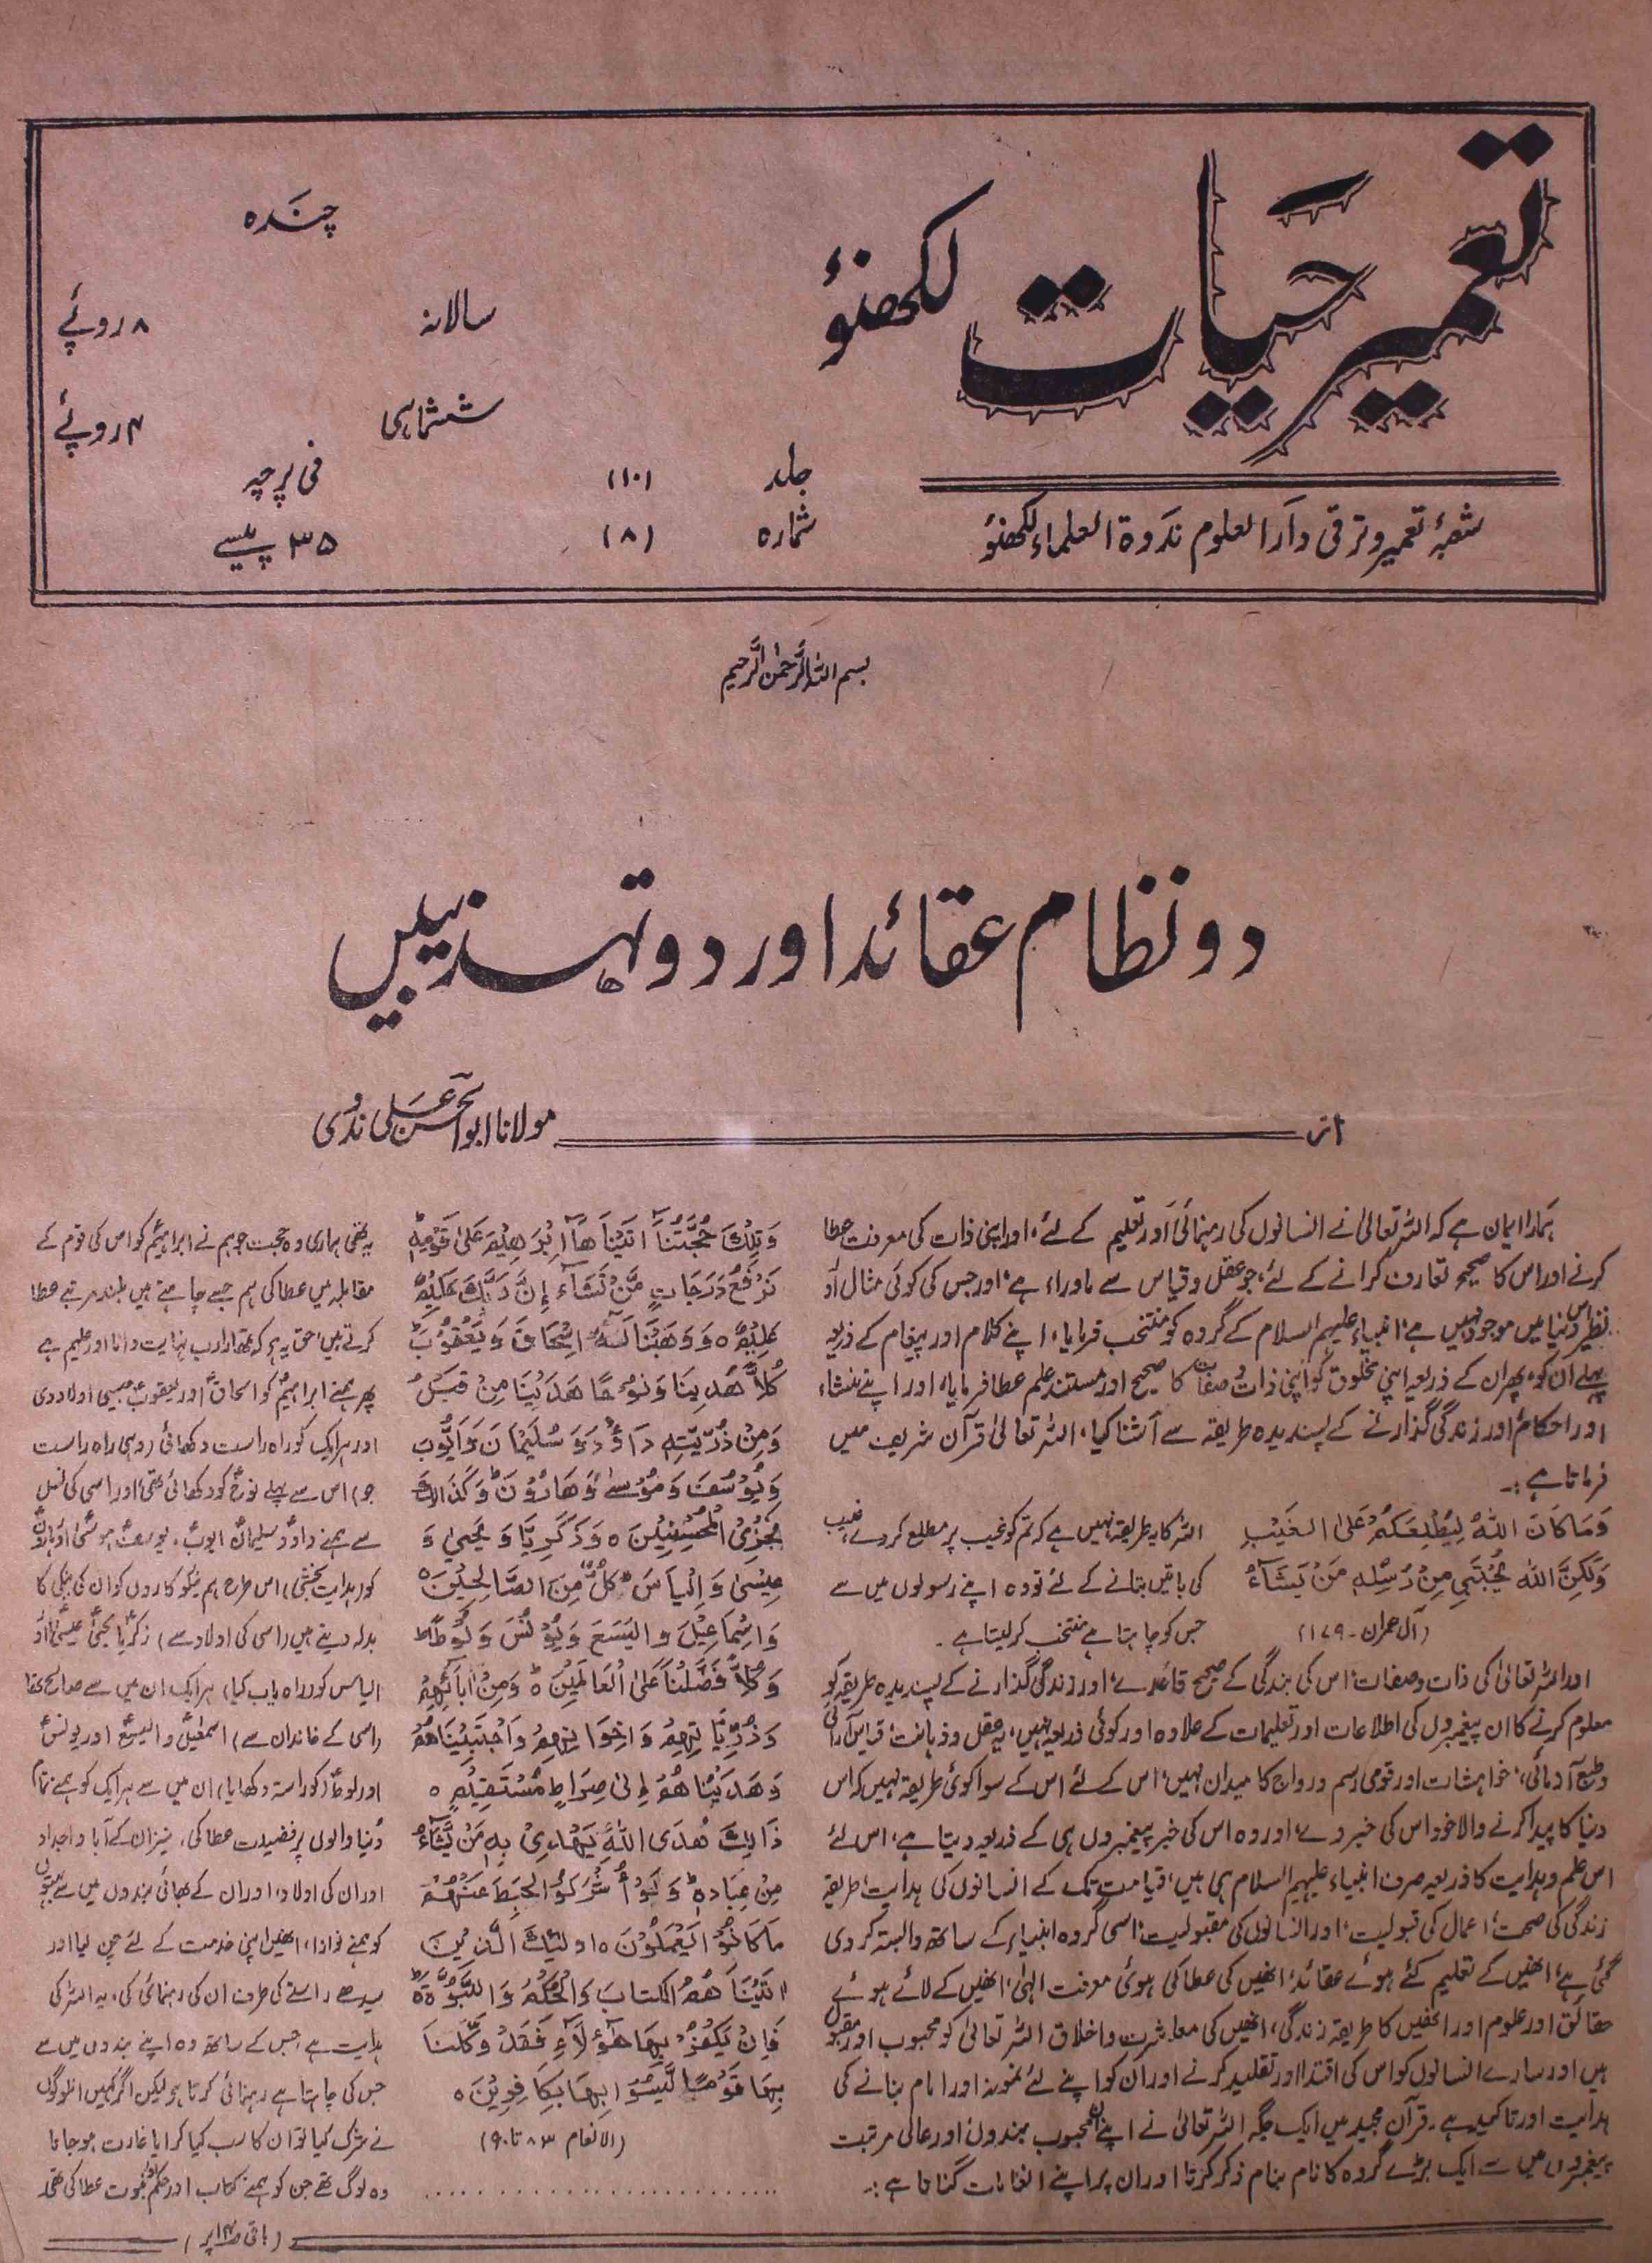 تعمیر حیات لکھنؤ
شعبۂ تعمیر و ترقی دار العلوم ندوۃ العلماء لکھنؤ
جلد (۱۰)
شمارہ (۸)
چندہ
سالانہ ۸ روپئے
ششماہی ۴ روپئے
فی پرچہ
۳۵ پیسے
بسم اللہ الرحمٰن الرحیم
دو نظام عقائد اور دو تہذیبیں
از مولانا ابوالحسن علی ندوی
ہمارا ایمان ہے کہ اللہ تعالیٰ نے انسانوں کی رہنمائی اور تعلیم کے لئے، اور اپنی ذات کی معرفت عطا
کرنے اور اس کا صحیح تعارف کرانے کے لئے، جو عقل و قیاس سے ماوراء ہے، اور جس کی کوئی مثال اور
نظیر اس دنیا میں موجود نہیں ہے، انبیاء علیہم السلام کے گروہ کو منتخب فرمایا، اپنے کلام اور پیغام کے ذریعہ
پہلے ان کو، پھر ان کے ذریعہ اپنی مخلوق کو اپنی ذات و صفات کا صحیح اور مستند علم عطا فرمایا، اور اپنے منشاء
اور احکام اور زندگی گذارنے کے پسندیدہ طریقہ سے آشنا کیا، اللہ تعالیٰ قرآن شریف میں
فرماتا ہے :۔
وَمَا كَانَ اللهُ لِيُطْلِعَكُمْ عَلَى الْغَيْبِ
وَلٰكِنَّ اللهَ يَجْتَبِي مِنْ رُسُلِهٖ مَنْ يَشَآءُ
(آل عمران ۔ ۱۷۹)
اللہ کا یہ طریقہ نہیں ہے کہ تم کو غیب پر مطلع کر دے، غیب
کی باتیں بتانے کے لئے تو وہ اپنے رسولوں میں سے
جس کو چاہتا ہے منتخب کر لیتا ہے ۔
اور اللہ تعالیٰ کی ذات و صفات، اس کی بندگی کے صحیح قاعدے، اور زندگی گذارنے کے پسندیدہ طریقہ کو
معلوم کرنے کا ان پیغمبروں کی اطلاعات اور تعلیمات کے علاوہ اور کوئی ذریعہ نہیں، یہ عقل و ذہانت، قیاس آرائی
و طبع آزمائی، خواہشات اور قومی رسم و رواج کا میدان نہیں، اس کے لئے اس کے سوا کوئی طریقہ نہیں کہ اس
دنیا کا پیدا کرنے والا خود اس کی خبر دے، اور وہ اس کی خبر پیغمبروں ہی کے ذریعہ دیتا ہے، اس لئے
اس علم و ہدایت کا ذریعہ صرف انبیاء علیہم السلام ہی ہیں، قیامت تک کے انسانوں کی ہدایت، طریقہ
زندگی کی صحت، اعمال کی قبولیت، اور انسانوں کی مقبولیت، اسی گروہ انبیاء کے ساتھ وابستہ کر دی
گئی ہے، انھیں کے تعلیم کئے ہوئے عقائد، انھیں کی عطا کی ہوئی معرفت الٰہی، انھیں کے لائے ہوئے
حقائق اور علوم اور انھیں کا طریقہ زندگی، انھیں کی معاشرت و اخلاق اللہ تعالیٰ کو محبوب اور مقبول
ہیں اور سارے انسانوں کو اس کی اقتدا اور تقلید کرنے اور ان کو اپنے لئے نمونہ اور امام بنانے کی
ہدایت اور تاکید ہے ۔ قرآن مجید میں ایک جگہ اللہ تعالیٰ نے اپنے ان محبوب بندوں اور عالی مرتبت
پیغمبروں میں سے ایک بڑے گروہ کا نام بنام ذکر کرتا اور ان پر اپنے انعامات گناتا ہے :۔
وَتِلْكَ حُجَّتُنَآ اٰتَيْنَاهَآ اِبْرٰهِيْمَ عَلٰى قَوْمِهٖ
نَرْفَعُ دَرَجَاتٍ مَّنْ نَّشَآءُ اِنَّ رَبَّكَ حَكِيْمٌ
عَلِيْمٌ ہ وَوَهَبْنَا لَهٗٓ اِسْحَاقَ وَيَعْقُوْبَ
كُلًّا هَدَيْنَا وَنُوْحًا هَدَيْنَا مِنْ قَبْلُ
وَمِنْ ذُرِّيَّتِهٖ دَاوٗدَ وَسُلَيْمَانَ وَاَيُّوْبَ
وَيُوْسُفَ وَمُوْسٰى وَهَارُوْنَ وَكَذَالِكَ
نَجْزِى الْمُحْسِنِيْنَ ہ وَزَكَرِيَّا وَيَحْيٰى وَ
عِيْسٰى وَاِلْيَاسَ كُلٌّ مِّنَ الصَّالِحِيْنَ ہ
وَاِسْمَاعِيْلَ وَالْيَسَعَ وَيُوْنُسَ وَلُوْطًا
وَكُلًّا فَضَّلْنَا عَلَى الْعَالَمِيْنَ ہ وَمِنْ اٰبَآئِهِمْ
وَذُرِّيَّاتِهِمْ وَاِخْوَانِهِمْ وَاجْتَبَيْنَاهُمْ
وَهَدَيْنَاهُمْ اِلٰى صِرَاطٍ مُّسْتَقِيْمٍ ہ
ذَالِكَ هُدَى اللهِ يَهْدِىْ بِهٖ مَنْ يَّشَآءُ
مِنْ عِبَادِهٖ وَلَوْ اَشْرَكُوْا لَحَبِطَ عَنْهُمْ
مَا كَانُوْا يَعْمَلُوْنَ ہ اُولٰئِكَ الَّذِيْنَ
اٰتَيْنَاهُمُ الْكِتَابَ وَالْحُكْمَ وَالنُّبُوَّةَ
فَاِنْ يَّكْفُرْ بِهَا هٰٓؤُلَآءِ فَقَدْ وَكَّلْنَا
بِهَا قَوْمًا لَّيْسُوْا بِهَا بِكَافِرِيْنَ ہ
(الانعام ۸۳ تا ۹۰)
یہ تھی ہماری وہ حجت جو ہم نے ابراہیمؑ کو اس کی قوم کے
مقابلہ میں عطا کی ہم جسے چاہتے ہیں بلند مرتبے عطا
کرتے ہیں، حق یہ ہے کہ تمھارا رب نہایت دانا اور علیم ہے
پھر ہمنے ابراہیمؑ کو اسحاقؑ اور یعقوبؑ جیسی اولاد دی
اور ہر ایک کو راہ راست دکھائی (وہی راہ راست
جو) اس سے پہلے نوحؑ کو دکھائی تھی، اور اسی کی نسل
سے ہمنے داؤد سلیمانؑ ایوبؑ، یوسفؑ، موسیٰؑ اور ہارونؑ
کو (ہدایت بخشی) اس طرح ہم نیکو کاروں کو ان کی نیکی کا
بدلہ دیتے ہیں (اسی کی اولاد سے) زکریاؑ یحییٰؑ عیسیٰؑ اور
الیاس کو (راہ یاب کیا) ہر ایک ان میں سے صالح تھا
(اسی کے خاندان سے) اسمٰعیلؑ و الیسعؑ اور یونسؑ
اور لوطؑ (کو راستہ دکھایا) ان میں سے ہر ایک کو ہمنے تمام
دنیا والوں پر فضیلت عطا کی، نیز ان کے آبا و اجداد
اور ان کی اولاد، اور ان کے بھائی بندوں میں سے بہتوں
کو ہمنے نوازا، انھیں اپنی خدمت کے لئے چن لیا اور
سیدھے راستے کی طرف ان کی رہنمائی کی، یہ اللہ کی
ہدایت ہے جس کے ساتھ وہ اپنے بندوں میں سے
جس کی چاہتا ہے رہنمائی کرتا ہے لیکن اگر کہیں ان لوگوں
نے شرک کیا تو ان کا سب کیا کرایا غارت ہو جاتا
وہ لوگ تھے جن کو ہمنے کتاب اور حکم اور نبوت عطا کی تھی
(باقی ص۱۴ پر)